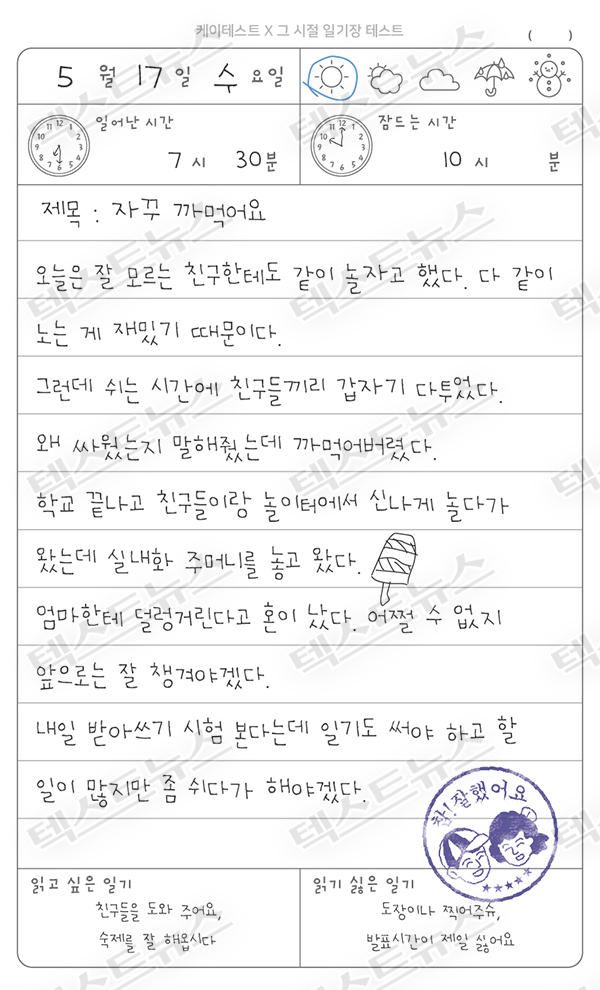 케이테스트 X 그 시절 일기장 테스트
(     )
5 월 17 일 수 요일
일어난 시간
7 시 30분
잠드는 시간
10 시 분
제목 : 자꾸 까먹어요
오늘은 잘 모르는 친구한테도 같이 놀자고 했다. 다 같이
노는 게 재밌기 때문이다.
그런데 쉬는 시간에 친구들끼리 갑자기 다투었다.
왜 싸웠는지 말해줬는데 까먹어버렸다.
학교 끝나고 친구들이랑 놀이터에서 신나게 놀다가
왔는데 실내화 주머니를 놓고 왔다.
엄마한테 덜렁거린다고 혼이 났다. 어쩔 수 없지
앞으로는 잘 챙겨야겠다.
내일 받아쓰기 시험 본다는데 일기도 써야 하고 할
일이 많지만 좀 쉬다가 해야겠다.
참! 잘했어요
읽고 싶은 일기
친구들을 도와 주어요,
숙제를 잘 해옵시다
읽기 싫은 일기
도장이나 찍어주슈,
발표시간이 제일 싫어요
텍스트뉴스